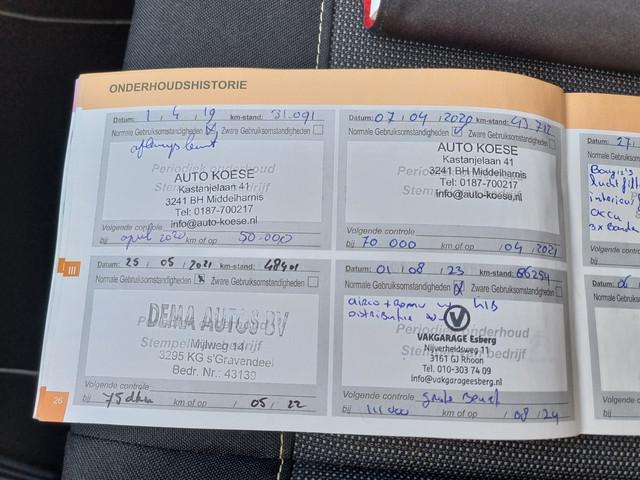 ONDERHOUDSHISTORIE
Datum: 1 / 4 / 19 km-stand: 31.091
Normale Gebruiksomstandigheden Zware Gebruiksomstandigheden
Periodiek onderhoud
Stempel bedrijf
AUTO KOESE
Kastanjelaan 41
3241 BH Middelharnis
Tel: 0187-700217
info@auto-koese.nl
Volgende controle
bij april 2020 km of op 50.000
Datum: 07 / 04 / 2020 km-stand: 43.712
Normale Gebruiksomstandigheden Zware Gebruiksomstandigheden
Periodiek onderhoud
Stempel bedrijf
AUTO KOESE
Kastanjelaan 41
3241 BH Middelharnis
Tel: 0187-700217
info@auto-koese.nl
Volgende controle
bij 70 000 km of op / 04 / 2021
III
Datum: 25 / 05 / 2021 km-stand: 48401
Normale Gebruiksomstandigheden Zware Gebruiksomstandigheden
DEMA AUTOS BV
Mijlweg 14
3295 KG s'Gravendeel
Bedr. Nr.: 43139
Volgende controle
bij 75dkm km of op / 05 / 22
Datum: 01 / 08 / 23 km-stand: 66254
Normale Gebruiksomstandigheden Zware Gebruiksomstandigheden
airco +
distributie
Periodiek onderhoud
Stempel bedrijf
VAKGARAGE Esberg
Nijverheidsweg 11
3161 GJ Rhoon
Tel. 010-303 74 09
info@vakgarageesberg.nl
Volgende controle grote beurt
bij km of op / 08 / 24
26
Datum: 27 /
Normale Gebruiksom
Bougie's
luchtfilt
interieur
accu
3x banden
Volgende controle
bij
Datum: 06 /
Normale Gebruiksom
Volgende controle
bij